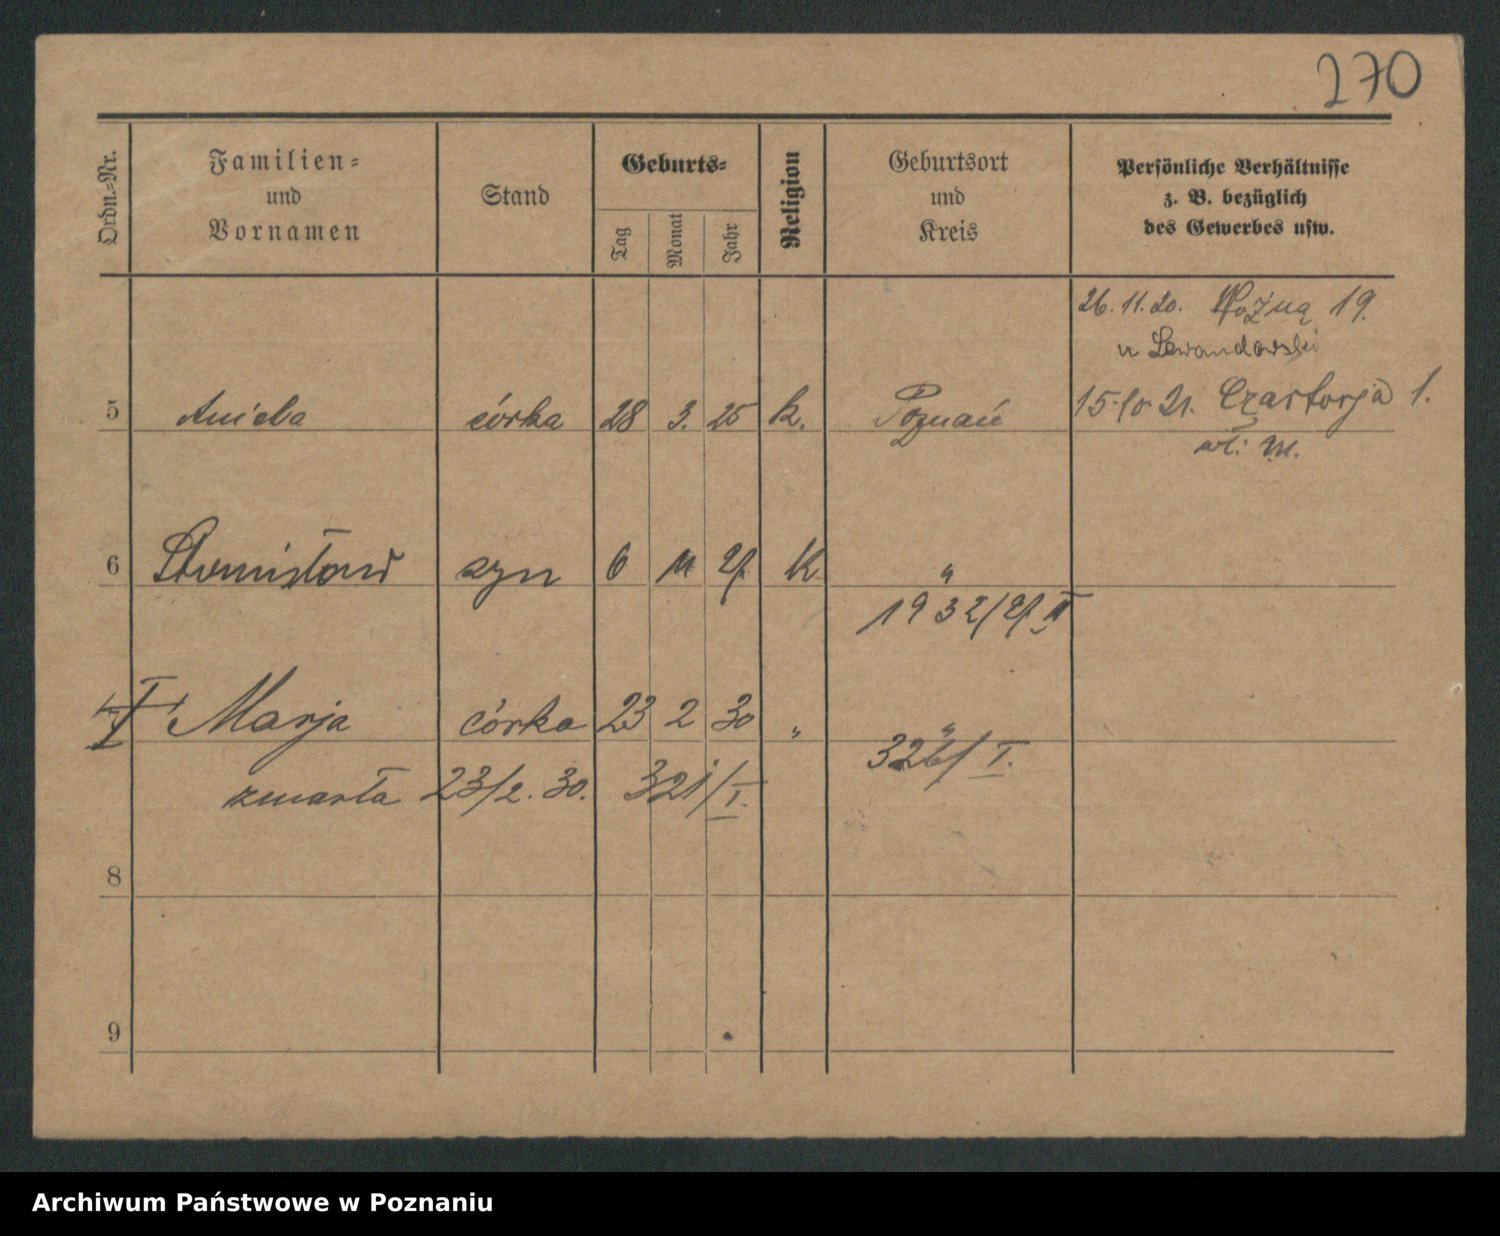 270
Ordn.-Nr.
Familien-
und
Vornamen
Stand
Geburts-
Tag
Monat
Jahr
Religion
Geburtsort
und
Kreis
Persönliche Verhältnisse
z. B. bezüglich
des Gewerbes usw.
26.11.20. Woźną 19.
u Lewandowski
15.10.21. Czartorja 1.
wł. m.
5 Aniela córka 28 3. 25 k. Poznań
6 Stanisław syn 6 11 27 K "
1932/27 II
Marja córka 23 2 30 " "
326/I.
zmarła 23/2. 30. 321/I.
8
9
Archiwum Państwowe w Poznaniu